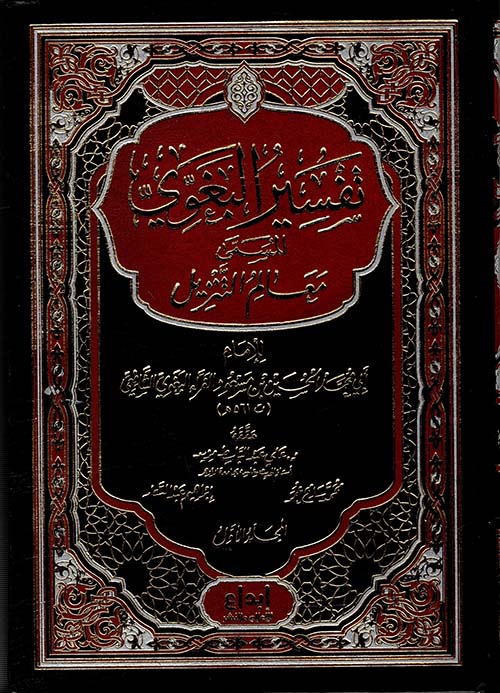 تفسير البغوي
المسمى
معالم التنزيل
للإمام
أبي محمد الحسين بن مسعود الفراء البغوي الشافعي
(ت ٥١٦ هـ)
حققه
المجلد الأول
إبداع